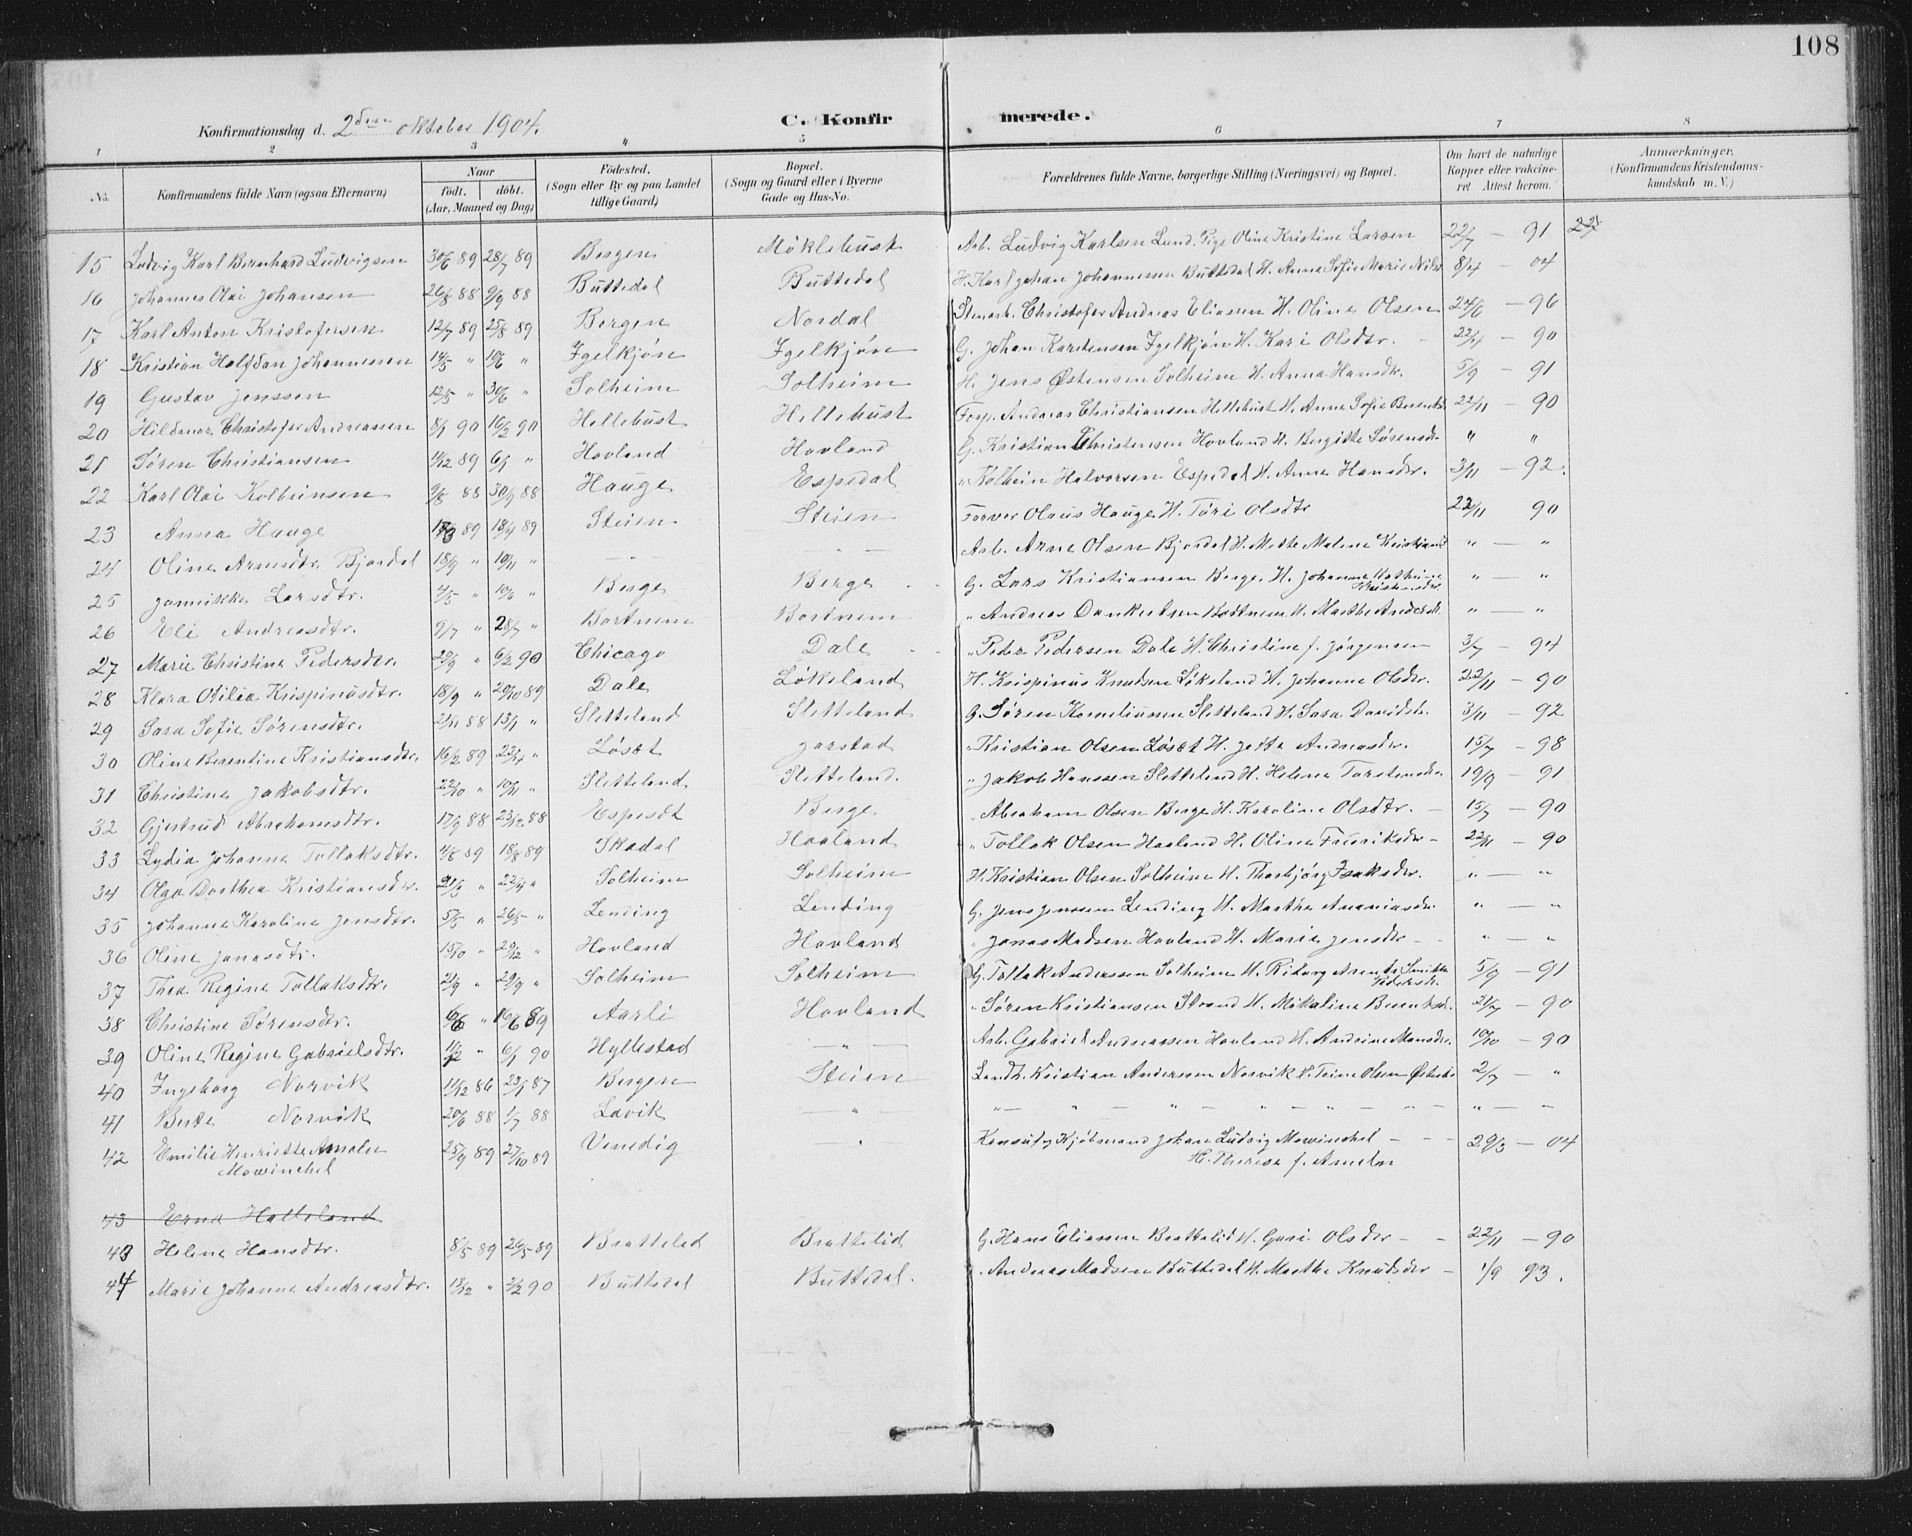 108
Konfirmationsdag d. 2den Oktober 1904. C. Konfirmerede.
1 2 3 4 5 6 7 8
No. Konfirmandens fulde Navn (ogsaa Efternavn) Naar født. døbt. (Aar, Maaned og Dag) Fødested. (Sogn eller By og paa Landet tillige Gaard) Bopæl. (Sogn og Gaard eller i Byerne Gade og Hus-No. Forældrenes fulde Navne, borgerlige Stilling (Næringsvei) og Bopæl. Om havt de naturlige Kopper eller vaccineret. Attest herom. Anmærkninger. (Konfirmandens Kristendomskundskab m. V.)
15 Ludvig Karl Bernhard Ludvigsen 30/6 89 28/7 89 Bergen Møklebust Arb. Ludvig Karlsen Lund, Pige Oline Kristine Larsen 22/7 — 91
16 Johannes Olai Johansen 26/8 88 9/9 88 Buttedal Buttedal H. Karl Johan Johannessen Buttedal H. Anna Sofie Marie 8/4 — 04
17 Karl Anton Kristofersen 12/7 89 25/8 89 Bergen Nordal Stenarb. Christofer Andreas Eliassen H. Oline Olsen 24/6 — 96
18 Kristian Halfdan Johannessen 14/5 " 10/6 " Igelkjøn Igelkjøn G. Johan Karstensen Igelkjøn H. Kari Olsdtr. 22/4 — 90
19 Gustav Jenssen 12/5 " 30/6 " Solheim Solheim H. Jens Østensen Solheim H. Anna Hansdtr. 5/9 — 91
20 Hildmar Christofer Andreassen 8/1 90 16/2 90 Hellebust Hellebust Andreas Christiansen Hellebust H. Anne Sofie 22/11 — 90
21 Søren Christiansen 11/12 89 6/1 " Hovland Hovland G. Kristian Christensen Hovland H. Bergitte Sørensdr " "
22 Karl Olai Kolbeinsen 9/8 88 30/9 88 Hauge Espedal " Kolbein Halvorsen Espedal H. Anne Hansdtr. 3/11 — 92.
23 Anna Hauge 17/3 89 18/4 89 Steien Steien Olaus Hauge H. Töri Olsdtr 22/11 90
24 Oline Arnesdtr. Bjordal 18/9 " 10/11 " — " — " — Arb. Arne Olsen Bjordal H. Mette Malene " — "
25 Jannikke Larsdtr. 4/5 " 10/6 " Berge Berge G. Lars Kristiansen Berge. H. Johanne " — "
26 Eli Andreasdtr. 9/7 " 28/7 " Bortnem Bortnem " Andreas Dankertsen Bortnem H. Marthe " — "
27 Marie Christine Pedersdtr. 29/9 " 6/2 90 Chicago Dale " Peder Pedersen Dale H. Christine f. Jørgensen 3/7 — 94
28 Klara Otilia Krispinusdtr. 18/9 " 20/10 89 Dale Løkeland H. Krispinus Knudsen Løkeland H. Johanne Olsdr. 22/11 — 90
29 Sara Sofie Sørensdtr. 21/11 88 13/1 " Sletteland Sletteland G. Søren Korneliussen Sletteland H. Sara Davidsdr. 3/11 — 92
30 Oline Berentine Kristiansdtr. 16/2 89 22/4 " Løset Jarstad " Kristian Olsen Løset H. Jette Andreasdr. 15/7 — 98
31 Christine Jakobsdtr. 22/10 " 10/11 " Sletteland Sletteland. " Jakob Hanssen Sletteland H. Helene Torstensdr 19/9 — 91
32 Gjertrud Abrahamsdtr. 17/9 88 23/12 88 Espesdt Berge " Abraham Olsen Berge H. Karoline Olsdtr. — 15/7 — 90
33 Lydia Johanne Tollaksdtr. 4/8 89 18/8 89 Skadal Hovland " Tollak Olsen Hovland H. Oline Fredriksdr — 22/11 — 90
34 Olga Dorthea Kristiansdtr. 21/3 " 22/4 " Solheim Solheim H. Kristian Olsen Solheim H. Thorbjørg Isaksdr. " — "
35 Johanne Karoline Jensdtr. 5/5 " 26/5 " Lending Lending G. Jens Jenssen Lending H. Marthe Ananiasdr. " — "
36 Oline Jonasdtr. 15/10 " 29/12 " Hovland Hovland " Jonas Madsen Hovland H. Marie Jensdr — " — "
37 Thea Regine Tollaksdtr. 2/9 " 29/9 " Solheim Solheim G. Tollak Anderssen Solheim H. 5/9 — 91
38 Christine Sørensdtr. 6/6 " 10/6 89 Aarli Hovland " Søren Kristiansen Strand H. Mikaline Berentsdr. 21/7 — 90
39 Oline Regine Gabrielsdtr. 11/12 " 6/1 90 Hyllestad — " — Arb. Gabriel Andreassen Hovland H. Andrine Monsdr. 10/10 — 90
40 Ingeborg Norvik 11/12 86 23/1 87 Bergen Steien Landh. Kristian Anderssen Norvik H. Trine Olsen 2/7 — "
41 Berte Norvik 20/6 88 1/7 88 Lavik — " " — " — " — " — " — " — " — " — "
42 Emilie Henriette Ameln 25/9 89 27/10 89 Venedig — " Konsul og Kjøbmand Johan Ludvig Mowinckel — — 29/3 — 04
Mowinckel H. Therese f. Amelin
43 Erna Halleland
43 Helene Hansdtr. 8/5 89 26/5 89 Brattelid Brattelid G. Hans Eliassen Brattelid H. Guri Olsdr — 22/11 — 90
44 Marie Johanne Andreasdtr. 13/12 " 2/2 90 Buttedal Buttedal. Andreas Madsen Buttedal H. Marthe Knudsdr — 1/9 93.